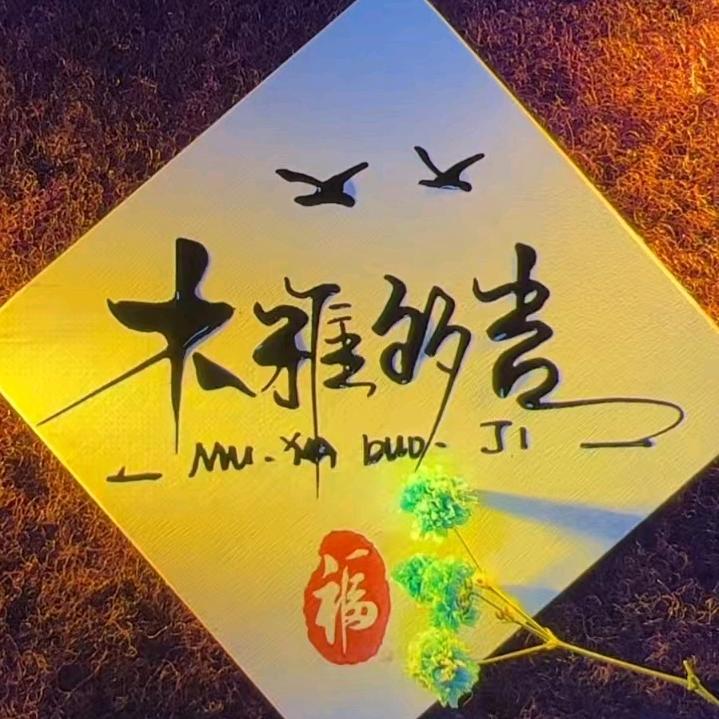 木雅多吉
Mu-ya Duo-JI
福